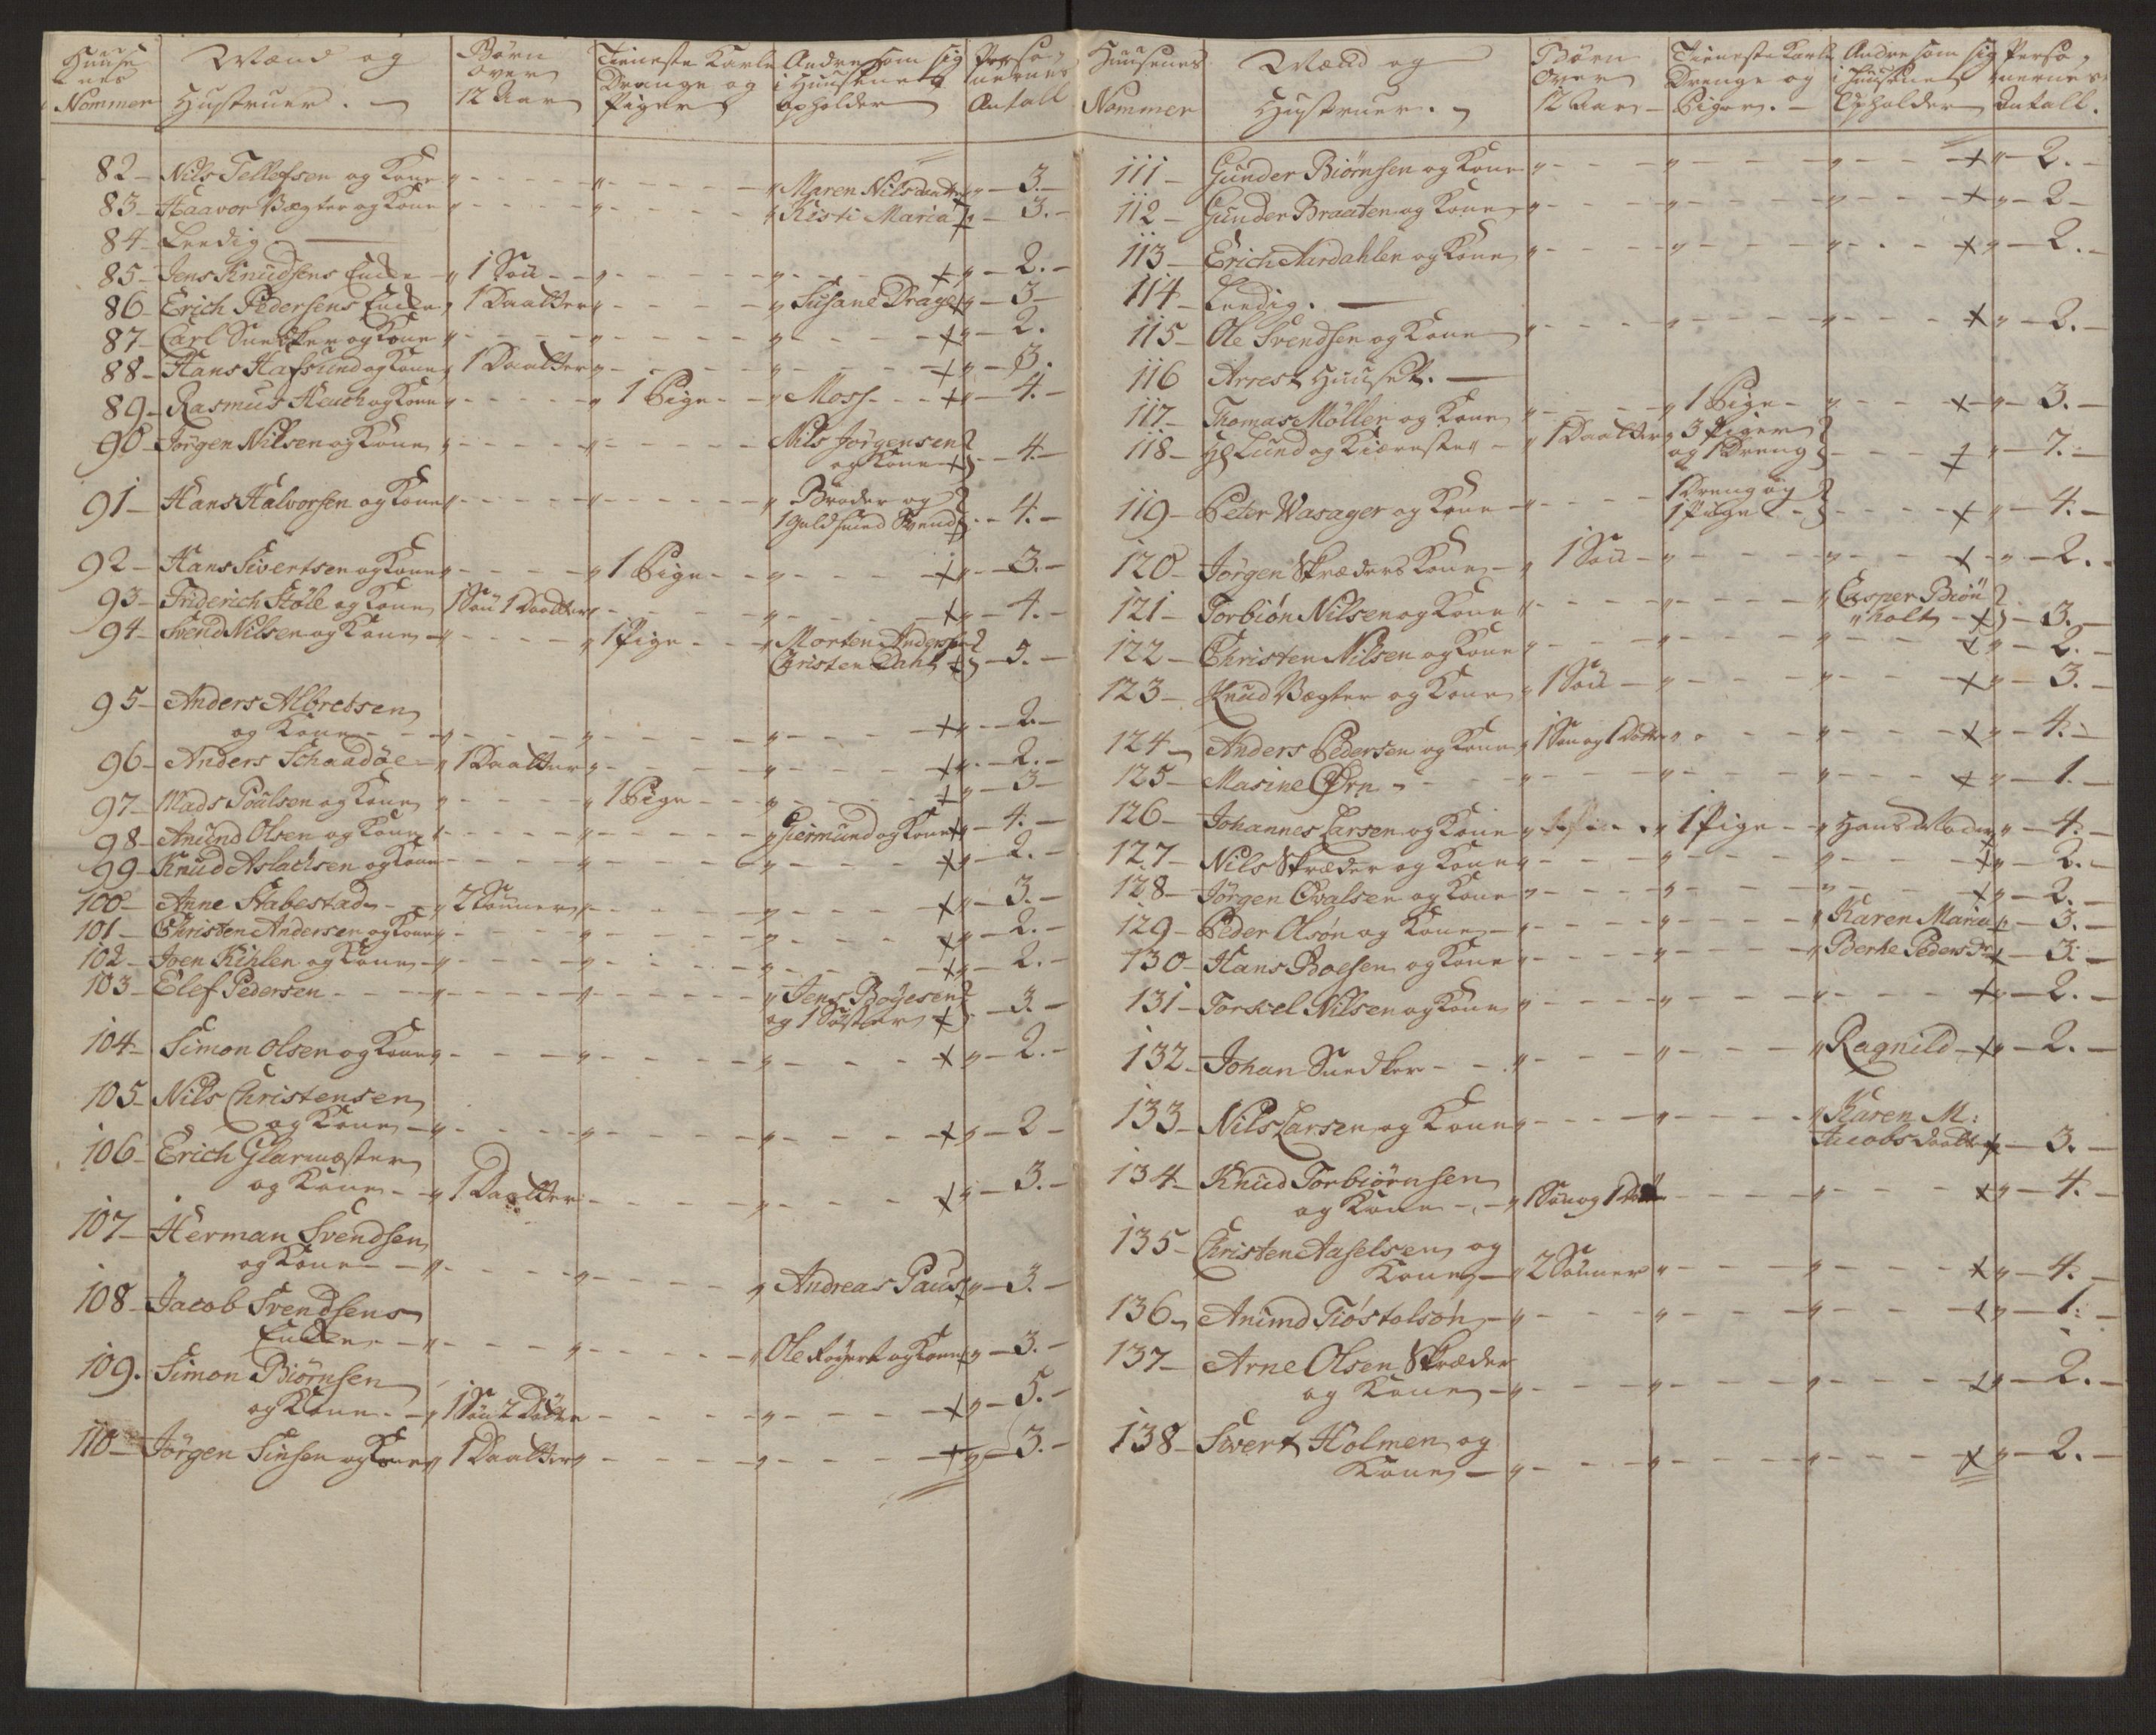 Huuse nes Nommer | Mænd og Hustruer. | Børn over 12 Aar | Tieneste Karle Drenge og Piger | Andre som sig i Huusene opholder | Personernes Antall
82 Nils Tellefsen og Kone " " Maren Nilsdaatter " 3.
83 Haavor Vægter og Kone " " Kisti Maria x 3.
84 Leedig
85 Jens Knudsens Encke " 1 Søn " " x " 2.
86 Erich Pedersens Encke " 1 Daatter " " Susane Drage x " 3
87 Carl Snedker og Kone " " " x " 2.
88 Hans Hafsund og Kone 1 Daatter " " x " 3.
89 Rasmus Heuch og Kone " " 1 Pige " Moss x " 4.
90 Jørgen Nilsen og Kone " " Nils Jørgensen
og Kone x 4.
91 Hans Halvorsen og Kone " " " Broder og
1 Guldsmed Svend x 4.
92 Hans Sivertsen og Kone " " 1 Pige " x " 3.
93 Friderich Støle og Kone 1 Søn 1 Daatter " " x " 4.
94 Svend Nilsen og Kone " " 1 Pige " Morten Andersen
Christen Dahl x 5.
95 Anders Albretsen
og Kone " " " x " 2.
96 Anders Schaadøe " 1 Daatter " " x " 2.
97 Mads Poulsen og Kone " " 1 Pige " x " 3
98 Amund Olsen og Kone " " " Giermund og Kone x " 4.
99 Knud Aslachsen og Kone " " x " 2.
100 Anne Stabestad " 2 Sønner " " x " 3.
101 Christen Andersen og Kone " " " x " 2.
102 Iven Kihlen og Kone " " " x " 2.
103 Elef Pedersen " " " Jens Boyesen
og 1 Søster x 3.
104 Simon Olsen og Kone " " " x " 2.
105 Nils Christensen
og Kone " " " x " 2
106 Erich Glarmæster
og Kone " 1 Daatter " x " 3.
107 Herman Svendsen
og Kone " " " Andreas Paus x " 3.
108 Jacob Svendsens
Encke " " " Ole og Kone x " 3.
109. Simon Biørnsen
og Kone " 1 Søn 2 Døttre " x " 5.
110 Jørgen Sinsen og Kone " 1 Daatter " " x " 3.
Huusenes Nommer | Mænd og Hustruer. | Børn over 12 Aar | Tieneste Karle Drenge og Piger. | Andre som sig i Huusene Opholder | Personernes Antall.
111 Gunder Biørnsen og Kone " " " x " 2.
112 Gunder Braaten og Kone " " " x " 2
113 Erich Aardahlen og Kone " " " x " 2.
114 Leedig.
115 Ole Svendsen og Kone " " " x " 2.
116 Arrest Huuset.
117 Thomas Møller og Kone " " 1 Pige " x " 3.
118 Hr Lund og Kiæreste " 1 Daatter " 3 Piger
og 1 Dreng x " 7.
119 Peter Wasager og Kone 1 Dreng og
1 Pige x " 4.
120 Jørgen Skræders Kone " 1 Søn " " x " 2.
121 Torbiøn Nilsen og Kone " " " Casper Biøn
holt x 3.
122 Christen Nilsen og Kone " " " x " 2.
123 Knud Vægter og Kone " 1 Søn " " x " 3.
124 Anders Pedersen og Kone " 1 Søn og 1 Datter " " x " 4.
125 Masine Ørn " " " x " 1.
126 Johannes Larsen og Kone " " 1 Pige " Hans Moder " 4.
127 Nils Skræder og Kone " " " x " 2.
128 Jørgen Qvalsen og Kone " " " x " 2.
129 Peder Olsøn og Kone " " " Karen Maria x 3.
130 Hans Boesen og Kone " " " Berte Peders Dr x 3.
131 Torkel Nilsen og Kone " " " x " 2.
132 Johan Snedker " " " Ragnild x " 2.
133 Nils Larsen og Kone " " " Karen M:
Jacobs daatter x 3.
134 Knud Torbiørnsen
og Kone " 1 Søn og 1 Datter " x " 4.
135 Christen Aaselsen og
Kone " 2 Sønner " " x " 4.
136 Amund Tiøstolsøn " " " x " 1.
137 Arne Olsen Skræder
og Kone " " " x " 2.
138 Sivert Holmen og
Kone " " " x " 2.